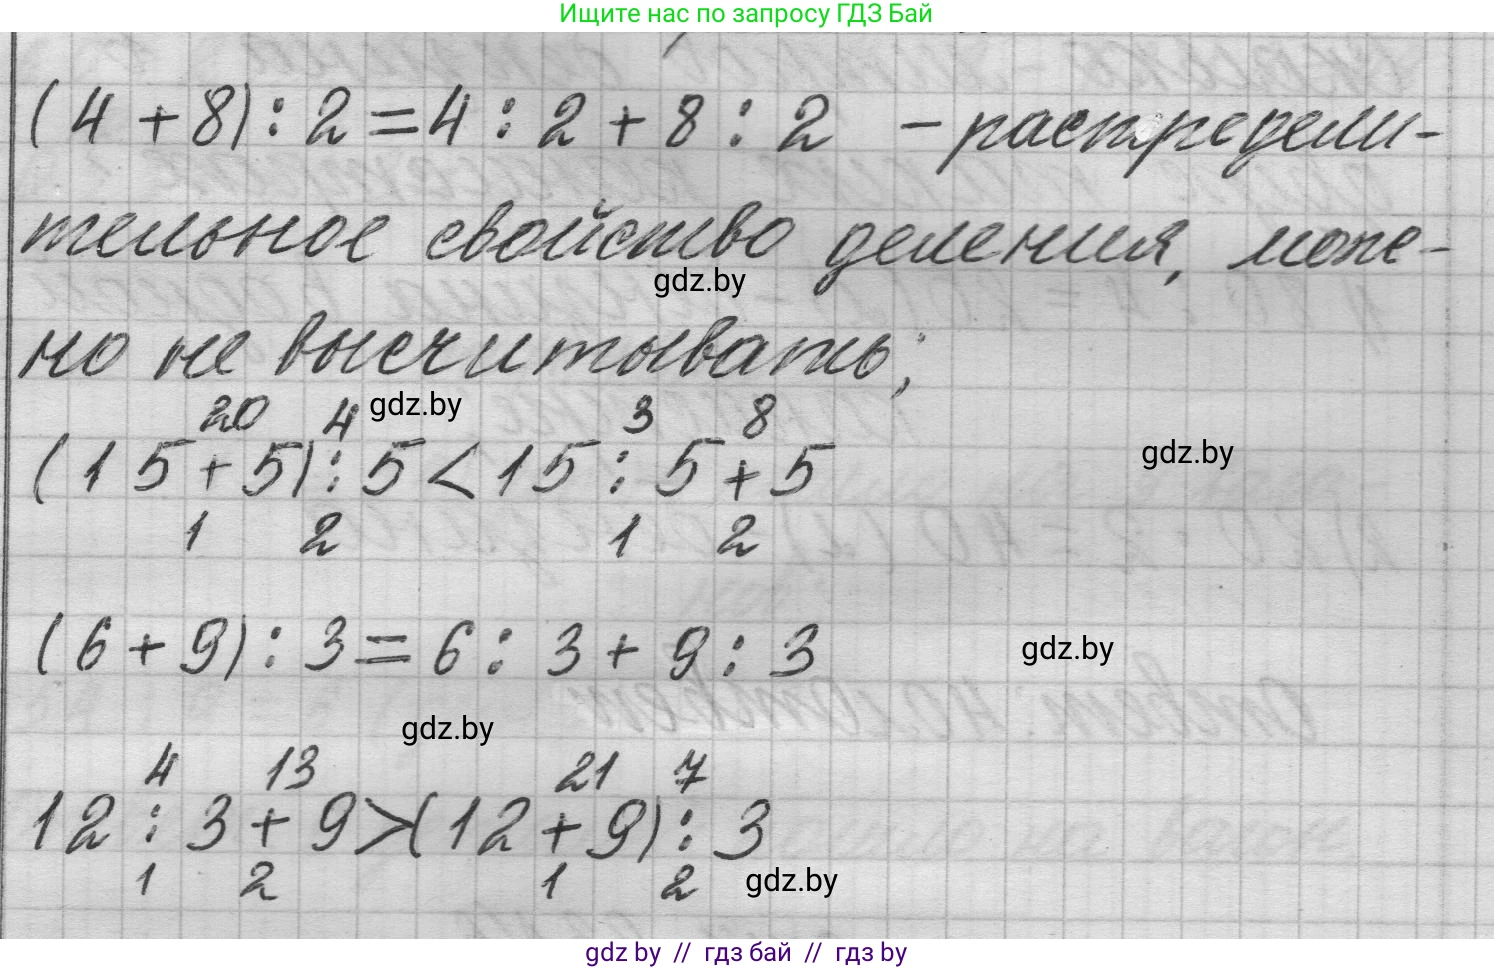 Ищите нас по запросу ГДЗ Бай
(4+8):2=4:2+8:2 - распредели-
тельное свойство деления, мож-
gdz.by
но не высчитывать;
20 4 gdz.by 3 8
(15+5):5<15:5+5 gdz.by
1 2 1 2
(6+9):3=6:3+9:3 gdz.by
gdz.by
4 13 21 7
12:3+9>(12+9):3
1 2 1 2 gdz.by
gdz by // гдз бай // гдз by